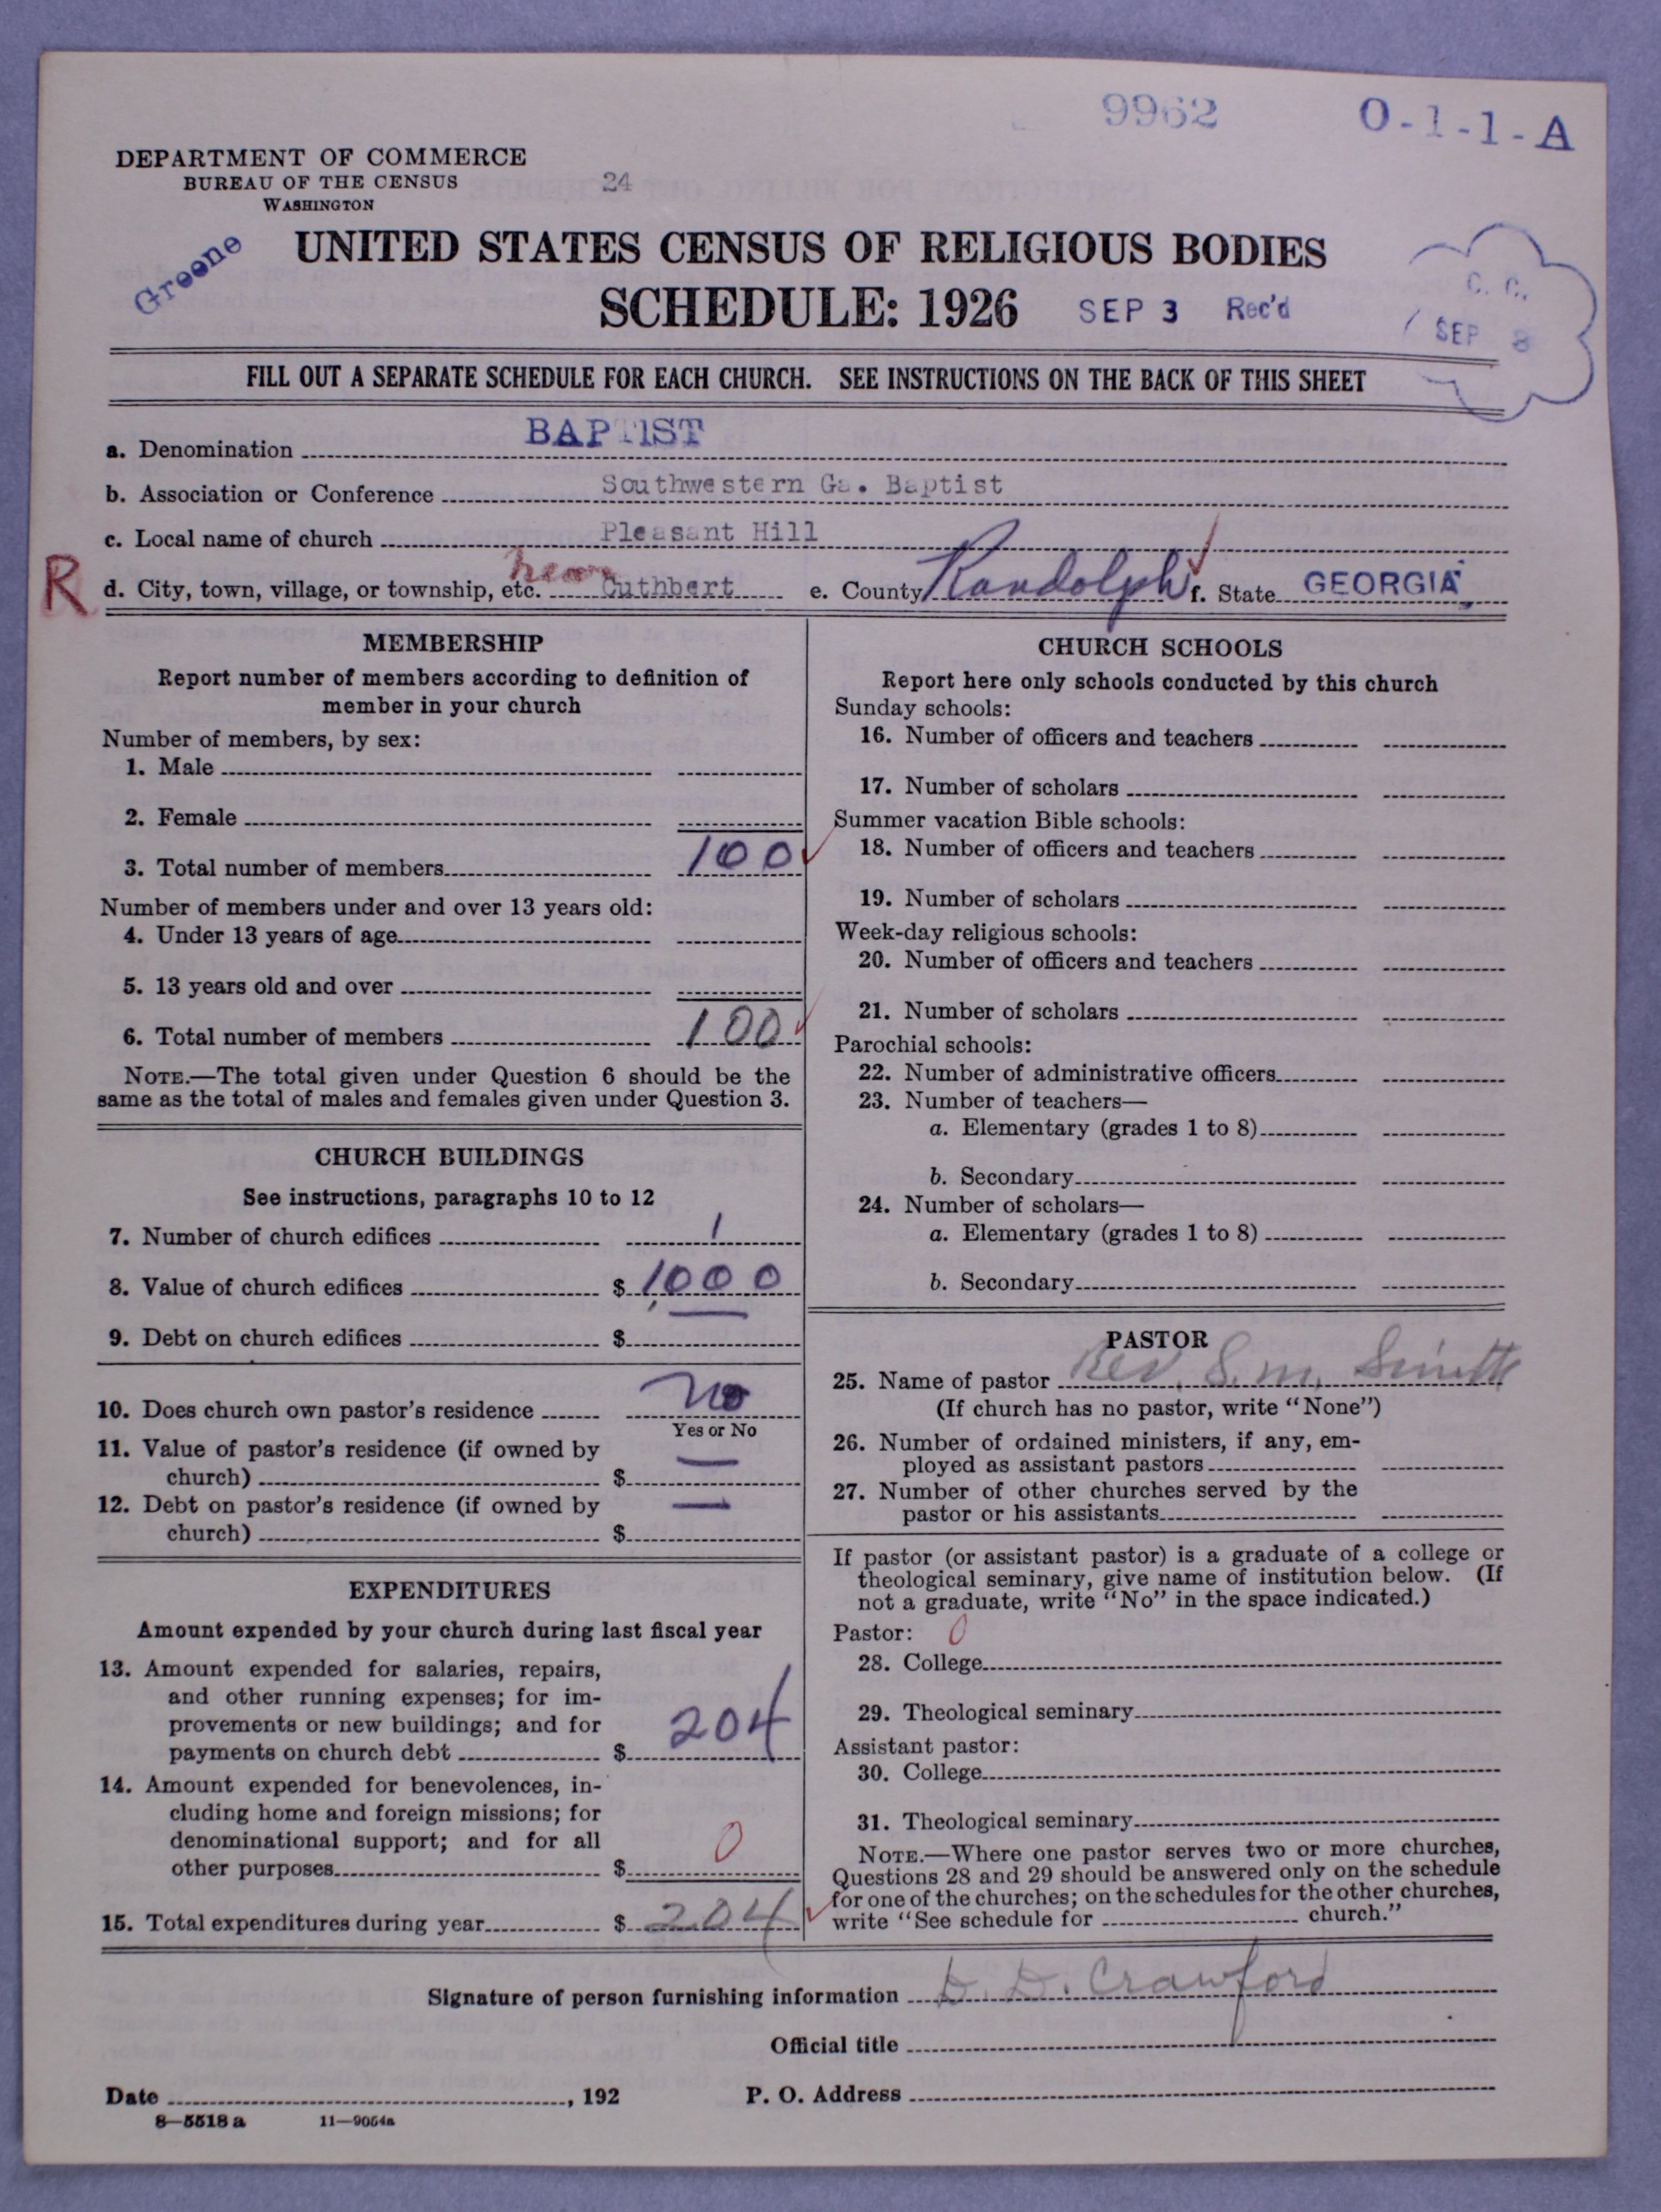 9962
O-1-1-A
DEPARTMENT OF COMMERCE
BUREAU OF THE CENSUS
WASHINGTON
24
Greene
UNITED STATES CENSUS OF RELIGIOUS BODIES
SCHEDULE: 1926
SEP 3 Rec'd
C. C.
SEP 8
FILL OUT A SEPARATE SCHEDULE FOR EACH CHURCH. SEE INSTRUCTIONS ON THE BACK OF THIS SHEET
a. Denomination BAPTIST
b. Association or Conference Southwestern Ga. Baptist
c. Local name of church Pleasant Hill
R
d. City, town, village, or township, etc. near Cuthbert e. County Randolph f. State GEORGIA
MEMBERSHIP
Report number of members according to definition of
member in your church
Number of members, by sex:
1. Male
2. Female
3. Total number of members 100
Number of members under and over 13 years old:
4. Under 13 years of age
5. 13 years old and over
6. Total number of members 100
NOTE.—The total given under Question 6 should be the
same as the total of males and females given under Question 3.
CHURCH BUILDINGS
See instructions, paragraphs 10 to 12
7. Number of church edifices 1
8. Value of church edifices $ 1,000
9. Debt on church edifices $
10. Does church own pastor's residence No
Yes or No
11. Value of pastor's residence (if owned by
church) $ —
12. Debt on pastor's residence (if owned by
church) $ —
EXPENDITURES
Amount expended by your church during last fiscal year
13. Amount expended for salaries, repairs,
and other running expenses; for im-
provements or new buildings; and for
payments on church debt $ 204
14. Amount expended for benevolences, in-
cluding home and foreign missions; for
denominational support; and for all
other purposes $ 0
15. Total expenditures during year $ 204
CHURCH SCHOOLS
Report here only schools conducted by this church
Sunday schools:
16. Number of officers and teachers
17. Number of scholars
Summer vacation Bible schools:
18. Number of officers and teachers
19. Number of scholars
Week-day religious schools:
20. Number of officers and teachers
21. Number of scholars
Parochial schools:
22. Number of administrative officers
23. Number of teachers—
a. Elementary (grades 1 to 8)
b. Secondary
24. Number of scholars—
a. Elementary (grades 1 to 8)
b. Secondary
PASTOR
25. Name of pastor Rev. S. M. Smith
(If church has no pastor, write "None")
26. Number of ordained ministers, if any, em-
ployed as assistant pastors
27. Number of other churches served by the
pastor or his assistants
If pastor (or assistant pastor) is a graduate of a college or
theological seminary, give name of institution below. (If
not a graduate, write "No" in the space indicated.)
Pastor: 0
28. College
29. Theological seminary
Assistant pastor:
30. College
31. Theological seminary
NOTE.—Where one pastor serves two or more churches,
Questions 28 and 29 should be answered only on the schedule
for one of the churches; on the schedules for the other churches,
write "See schedule for church."
Signature of person furnishing information D. D. Crawford
Official title
Date , 192 P. O. Address
8—5518 a 11—9054a